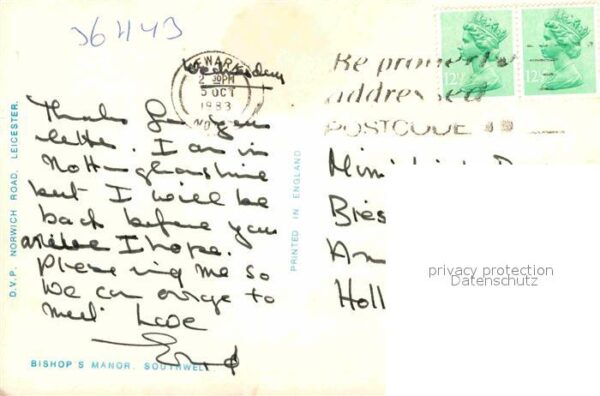 36443
Wednesday
NEWARK
2 30 PM
5 OCT
1983
NO
Be properly
addressed
POSTCODE
12½
12½
Thanks for your
letter. I am in
Nottinghamshire
but I will be
back before you
arrive I hope.
Please ring me so
we can arrange to
meet Love
D.V.P. NORWICH ROAD, LEICESTER.
PRINTED IN ENGLAND
BISHOP'S MANOR, SOUTHWELL
Holl
privacy protection
Datenschutz